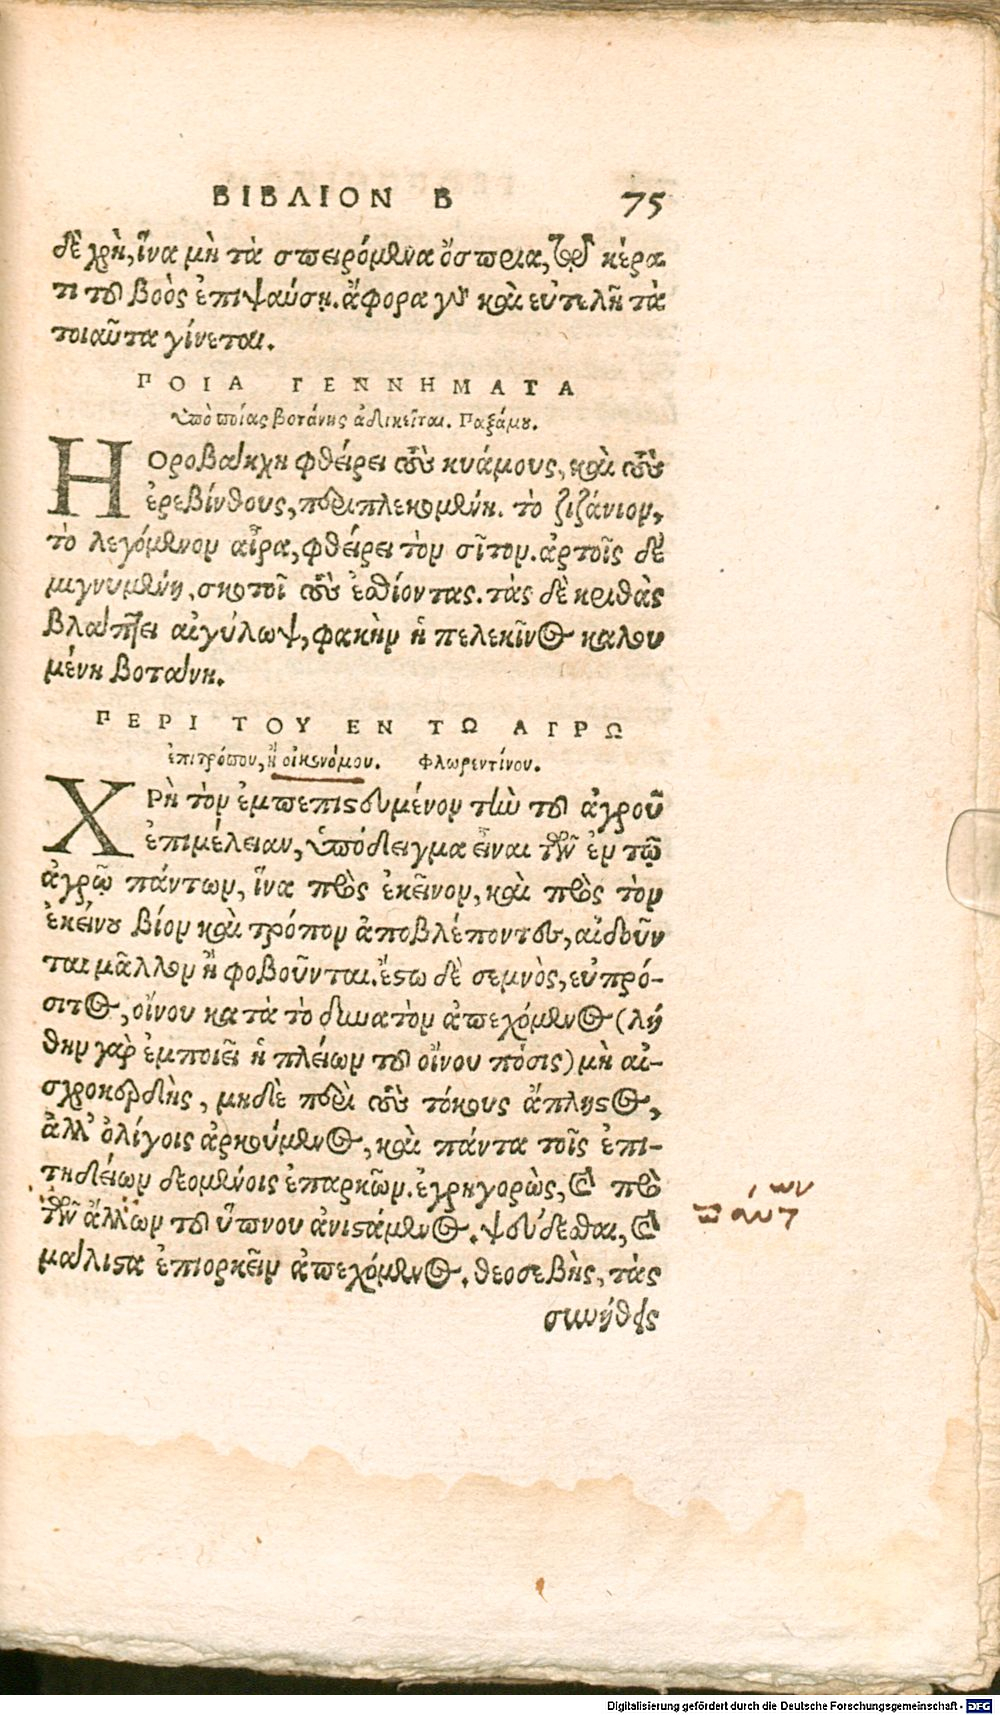 ΒΙΒΛΙΟΝ Β 75
δὲ χρὴ, ἵνα μὴ τὰ σπειρόμενα ὄσπρια, τῷ κέρα
τι τοῦ βοὸς ἐπιψαύσῃ. ἄφορα γὰρ καὶ εὐτελῆ τὰ
τοιαῦτα γίνεται.
ΠΟΙΑ ΓΕΝΝΗΜΑΤΑ
ὑπὸ ποίας βοτάνης ἀδικεῖται. Παξάμου.
Η Οροβάγχη φθείρει τοὺς κυάμους, καὶ τοὺς
ἐρεβίνθους, περιπλεκομένη. τὸ ζιζάνιον,
τὸ λεγόμενον αἶρα, φθείρει τὸν σῖτον. ἀρτοῖς δὲ
μιγνυμένη, σκοτοῖ τοὺς ἐσθίοντας. τὰς δὲ κριθὰς
βλάπτει αἰγύλωψ, φακὴν ἡ πελεκῖνος καλου
μένη βοτάνη.
ΠΕΡΙ ΤΟΥ ΕΝ ΤΩ ΑΓΡΩ
ἐπιτρόπου, ἢ οἰκονόμου. Φλωρεντίνου.
ΧΡὴ τὸν ἐμπεπιστευμένον τὴν τοῦ ἀγροῦ
ἐπιμέλειαν, ὑπόδειγμα εἶναι τῶν ἐν τῷ
ἀγρῷ πάντων, ἵνα πρὸς ἐκεῖνον, καὶ πρὸς τὸν
ἐκείνου βίον καὶ τρόπον ἀποβλέποντες, αἰδοῦν
ται μᾶλλον ἢ φοβοῦνται. ἔστω δὲ σεμνὸς, εὐπρό-
σιτος, οἴνου κατὰ τὸ δυνατὸν ἀπεχόμενος (λή
θην γὰρ ἐμποιεῖ ἡ πλείων τοῦ οἴνου πόσις) μὴ αἰ-
σχροκερδὴς, μηδὲ περὶ τοὺς τόκους ἄπληστος,
ἀλλ' ὀλίγοις ἀρκούμενος, καὶ πάντα τοῖς ἐπι-
τηδείων δεομένοις ἐπαρκῶν. ἐγρηγορὼς, καὶ πρὸ
τῶν ἄλλων τοῦ ὕπνου ἀνιστάμενος. ψεύδεσθαι, καὶ
πάντων
μάλιστα ἐπιορκεῖν ἀπεχόμενος. θεοσεβὴς, τὰς
συνήθεις
Digitalisierung gefördert durch die Deutsche Forschungsgemeinschaft - DFG